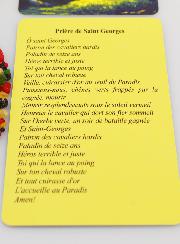 Prière de Saint Georges
O saint Georges
Patron des cavaliers hardis
Paladin de seize ans
Héros terrible et juste
Toi qui la lance au poing
Sur ton cheval robuste
Veille, cuirassier d'or au seuil du Paradis
Puissions-nous, chênes verts frappés par la
cognée, mourir
Mourir resplendissants sous le soleil vermeil
Honneur le cavalier qui dort son fier sommeil
Sur l'herbe verte, un soir de bataille gagnée
Et Saint-Georges
Patron des cavaliers hardis
Paladin de seize ans
Héros terrible et juste
Toi qui la lance au poing
Sur ton cheval robuste
Et tout cuirasse d'or
L'accueille au Paradis
Amen!